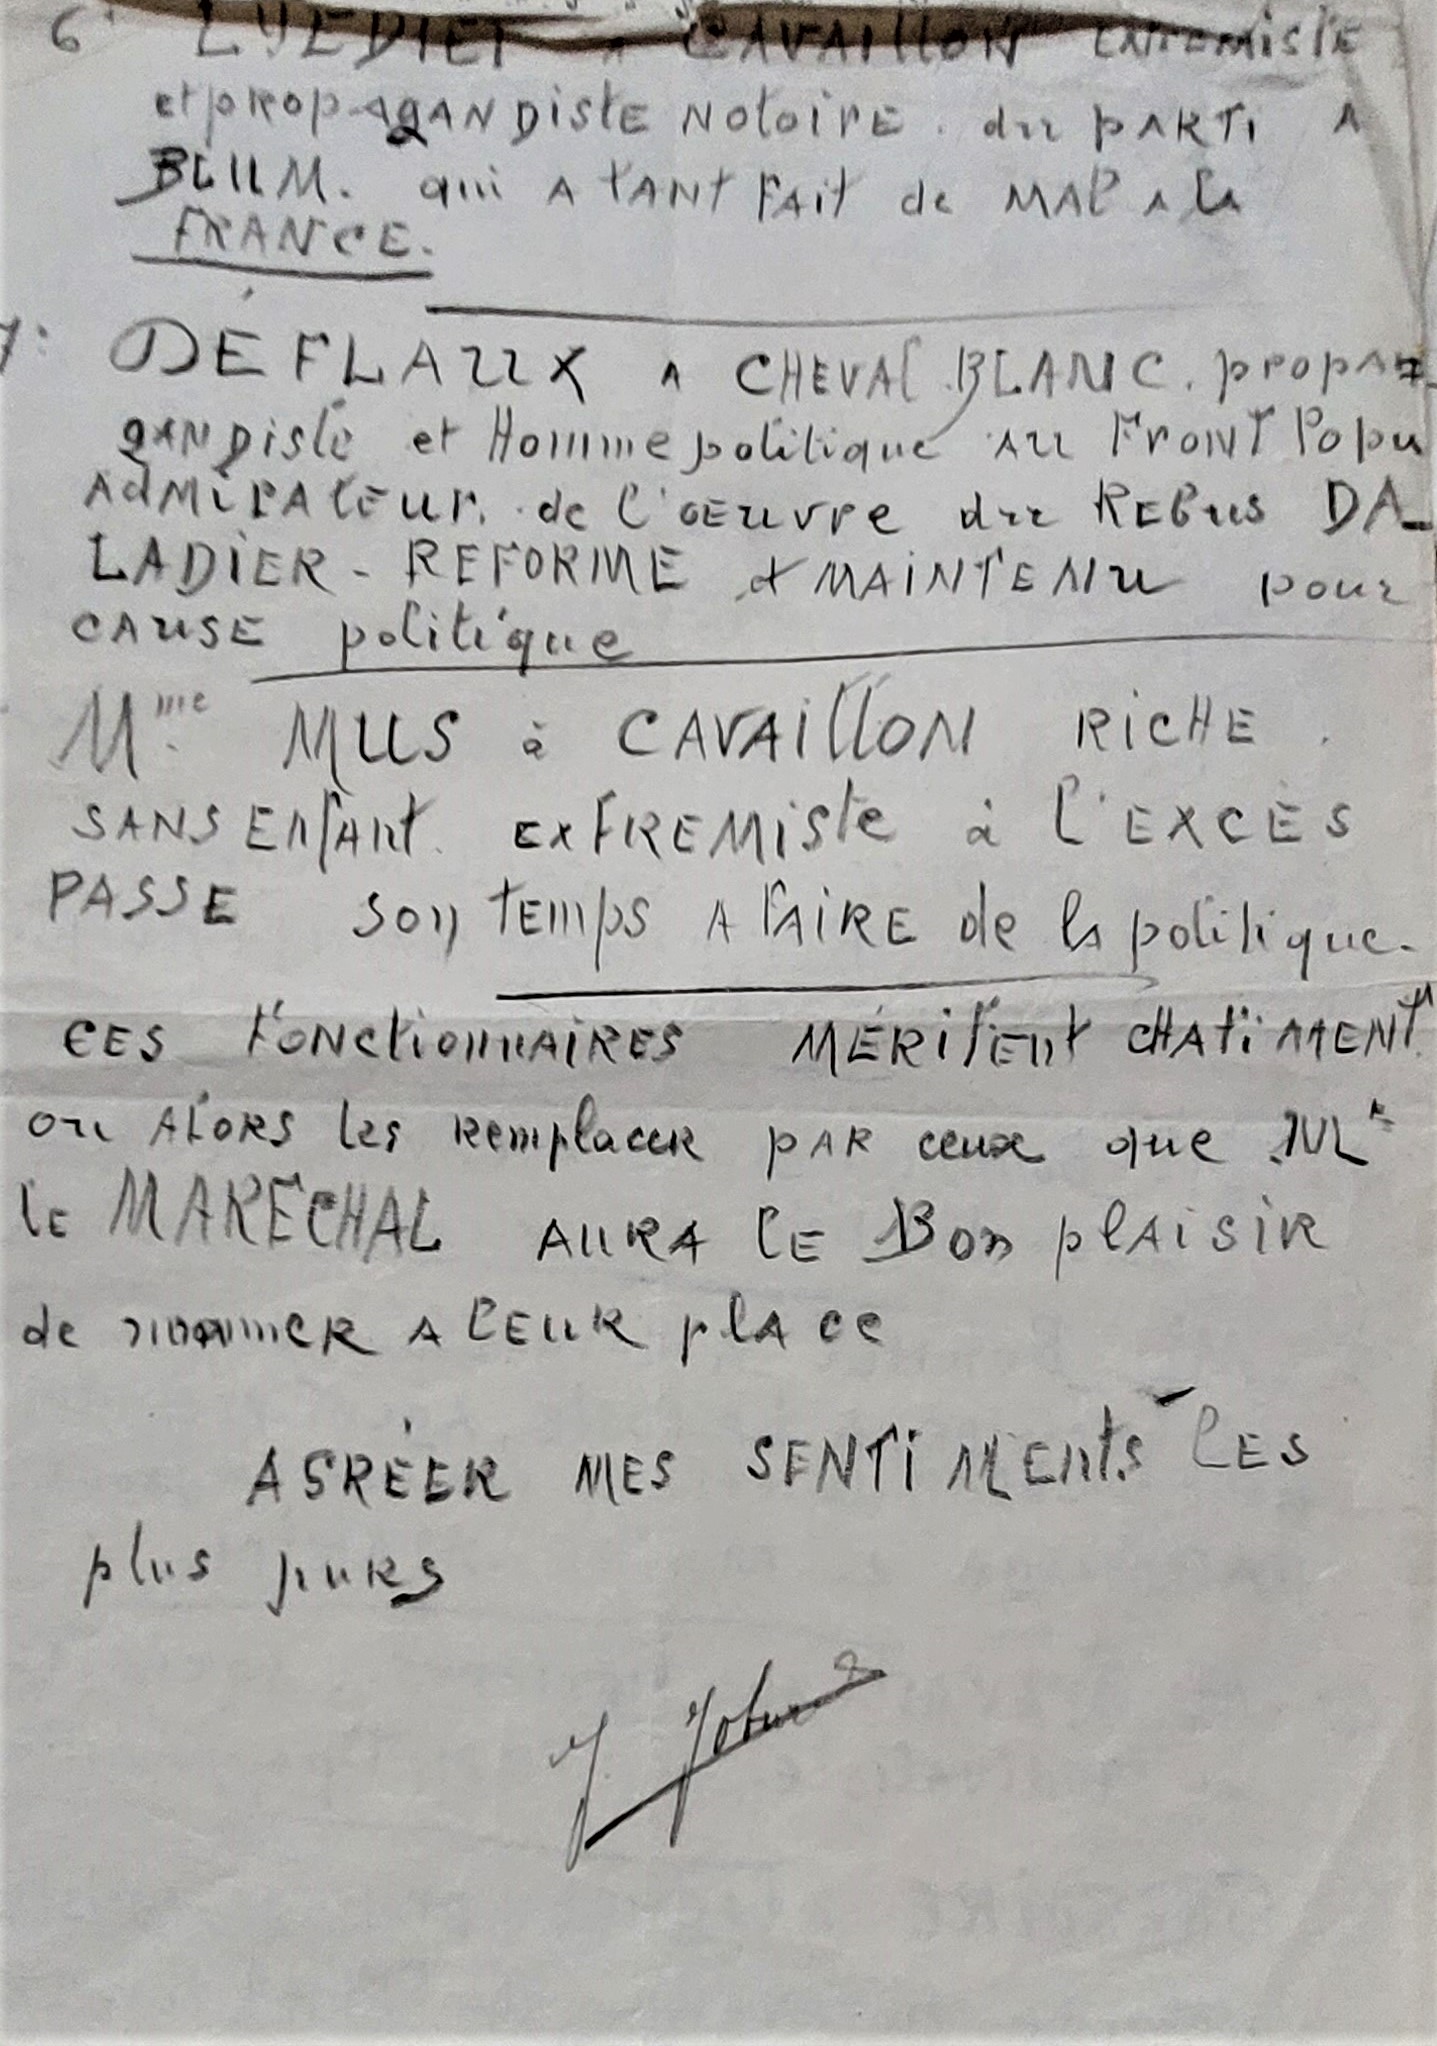 6° A CAVAILLON EXTREMISTE
et PROPAGANDISTE NOTOIRE. du PARTI A
BLUM. qui A TANT FAIT de MAL A la
FRANCE.
7: DÉFLAUX A CHEVAL BLANC. PROPA-
GANDISTE et Homme politique AU FRONT Popu
ADMIRATEUR. de l'OEUVRE du REBUS DA-
LADIER - REFORMÉ et MAINTENU pour
CAUSE politique
Mme MUS à CAVAILLON RICHE.
SANS ENFANT. EXTREMISTE à l'EXCÈS
PASSE SON TEMPS A FAIRE de la politique.
CES FONCTIONNAIRES MÉRITENT CHATIMENT
ou ALORS les REMPLACER PAR ceux que Mr
le MARÉCHAL AURA LE BON PLAISIR
de nommer A LEUR PLACE
AGRÉER MES SENTIMENTS LES
plus purs